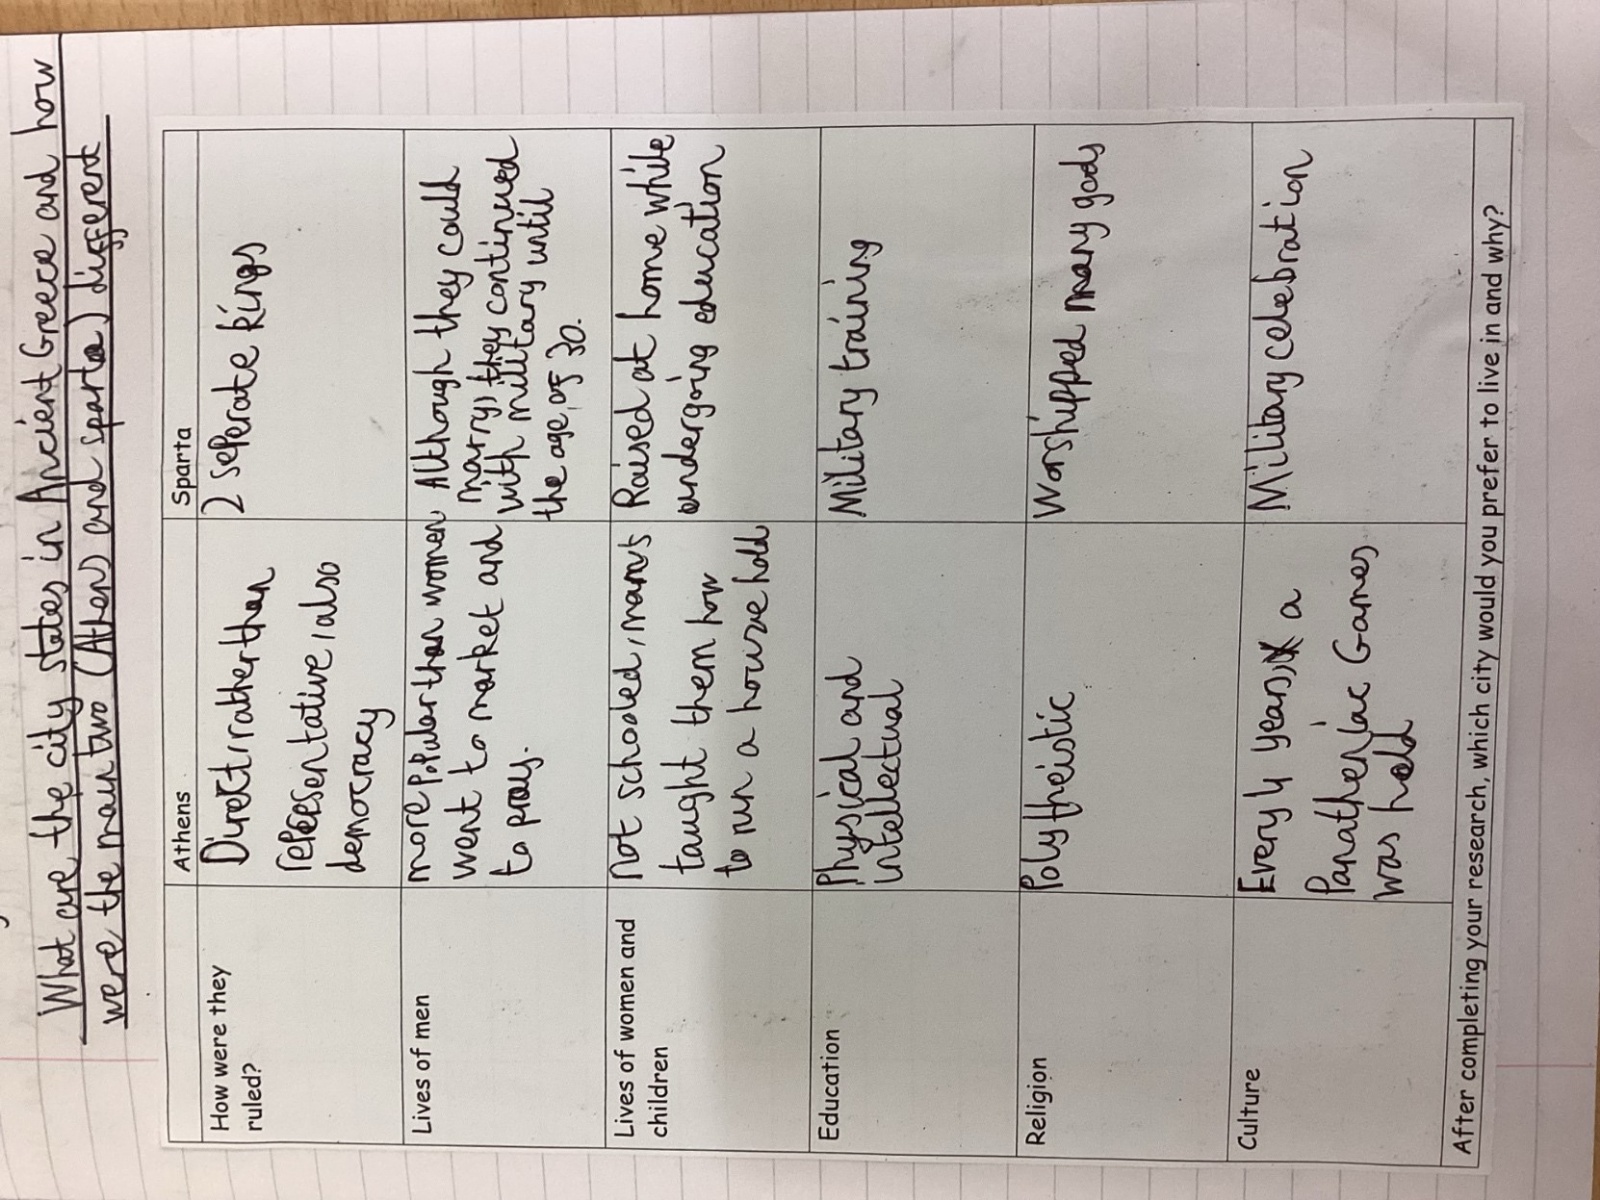 What are the city states in Ancient Greece and how
were the main two (Athens and sparta) different
Athens
Sparta
How were they
ruled?
Direct, rather than
representative, also
democracy
2 seperate kings
Lives of men
more popular than women
went to market and
to pray.
Although they could
marry, they continued
with military until
the age, of 30.
Lives of women and
children
not schooled, mams
taught them how
to run a house hold
Raised at home while
undergoing education
Education
Physical and
intellectual
Military training
Religion
Polytheistic
Worshipped many gods
Culture
Every 4 years, a
Panatheniac Games
was held
Military celebration
After completing your research, which city would you prefer to live in and why?